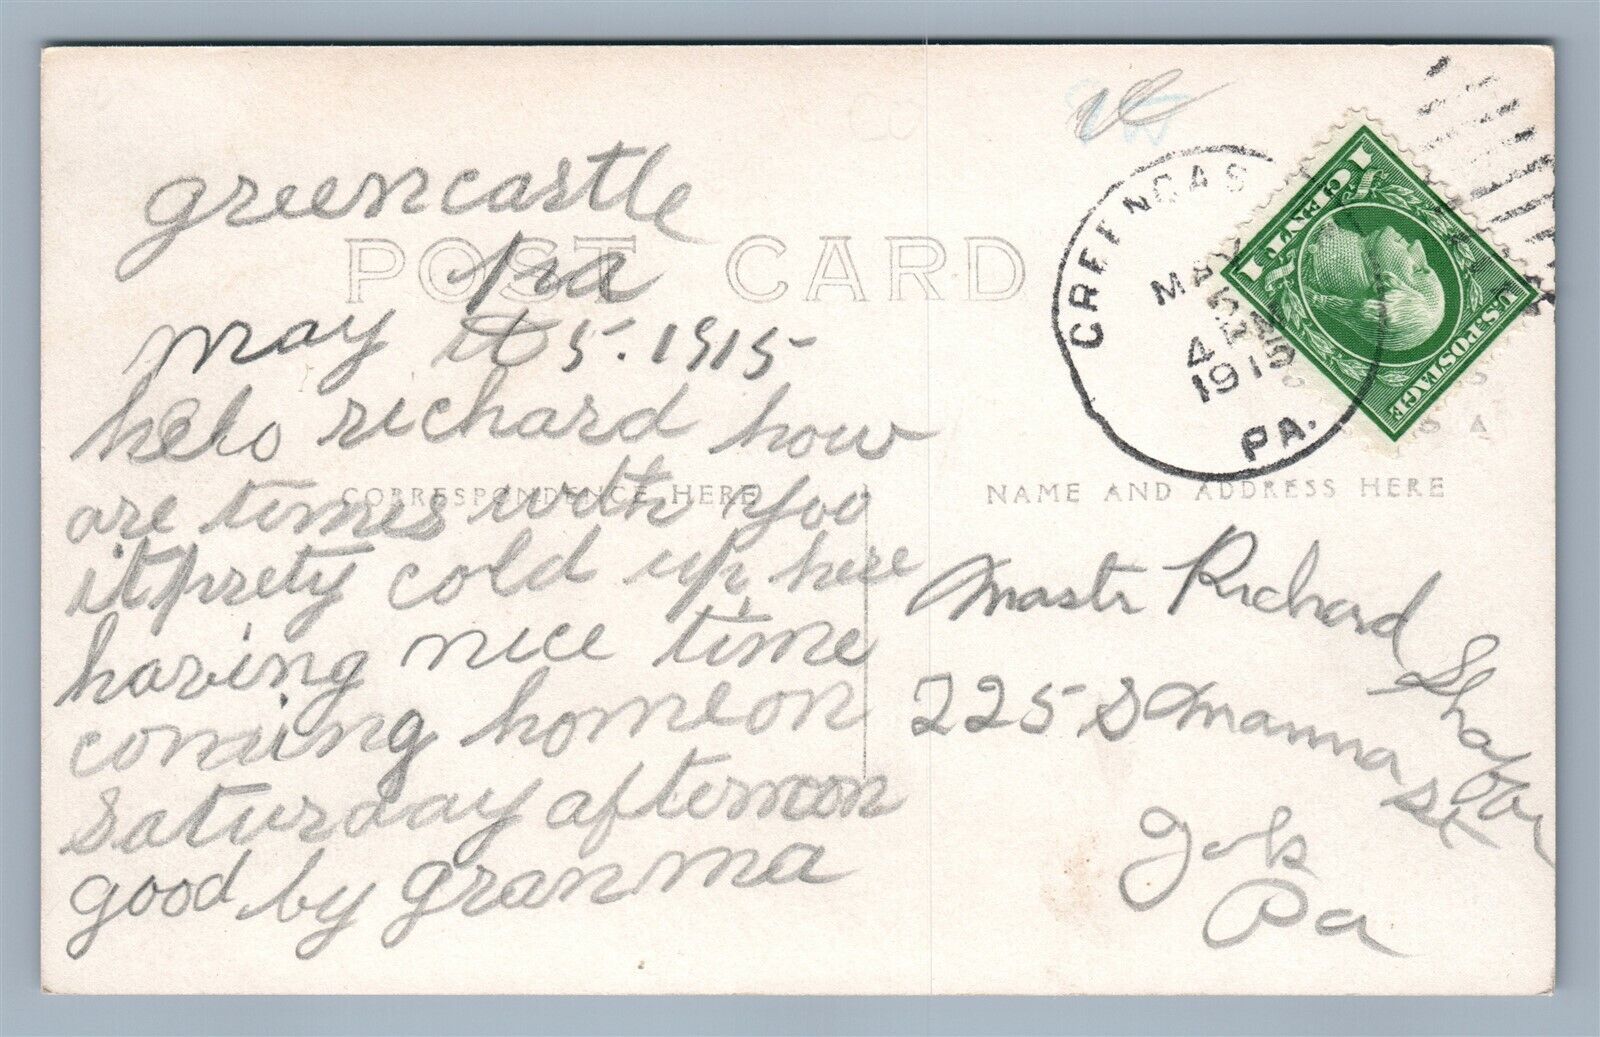 greencastle
pa
may 5. 1915
helo richard how
are times with you
it prety cold up here
having nice time
coming home on
Saturday afternoon
good by granma
POST CARD
CORRESPONDENCE HERE
NAME AND ADDRESS HERE
GREENCAS
MAY
5
4
1915
PA.
1 CENT 1
U.S. POSTAGE
Mastr Richard
225 S
St
Pa